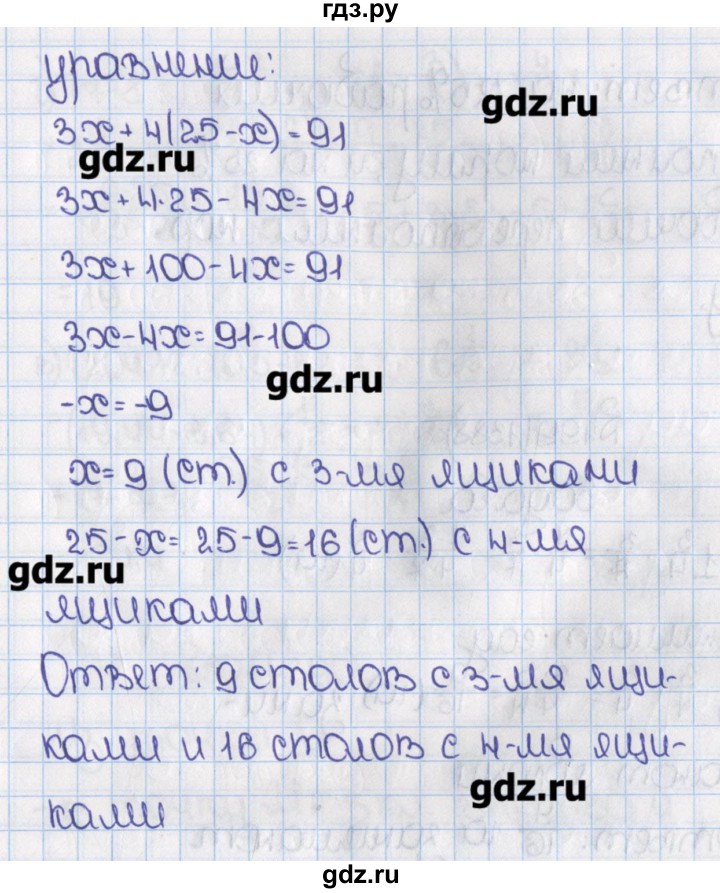 гдз.ру
уравнение:
gdz.ru
3x+4(25-x)=91
gdz.ru
3x+4·25-4x=91
3x+100-4x=91
3x-4x=91-100
gdz.ru
-x=-9
x=9 (ст.) с 3-мя ящиками
25-x=25-9=16 (ст.) с 4-мя
gdz.ru
ящиками
Ответ: 9 столов с 3-мя ящи-
ками и 16 столов с 4-мя ящи-
gdz.ru
ками
gdz.ru